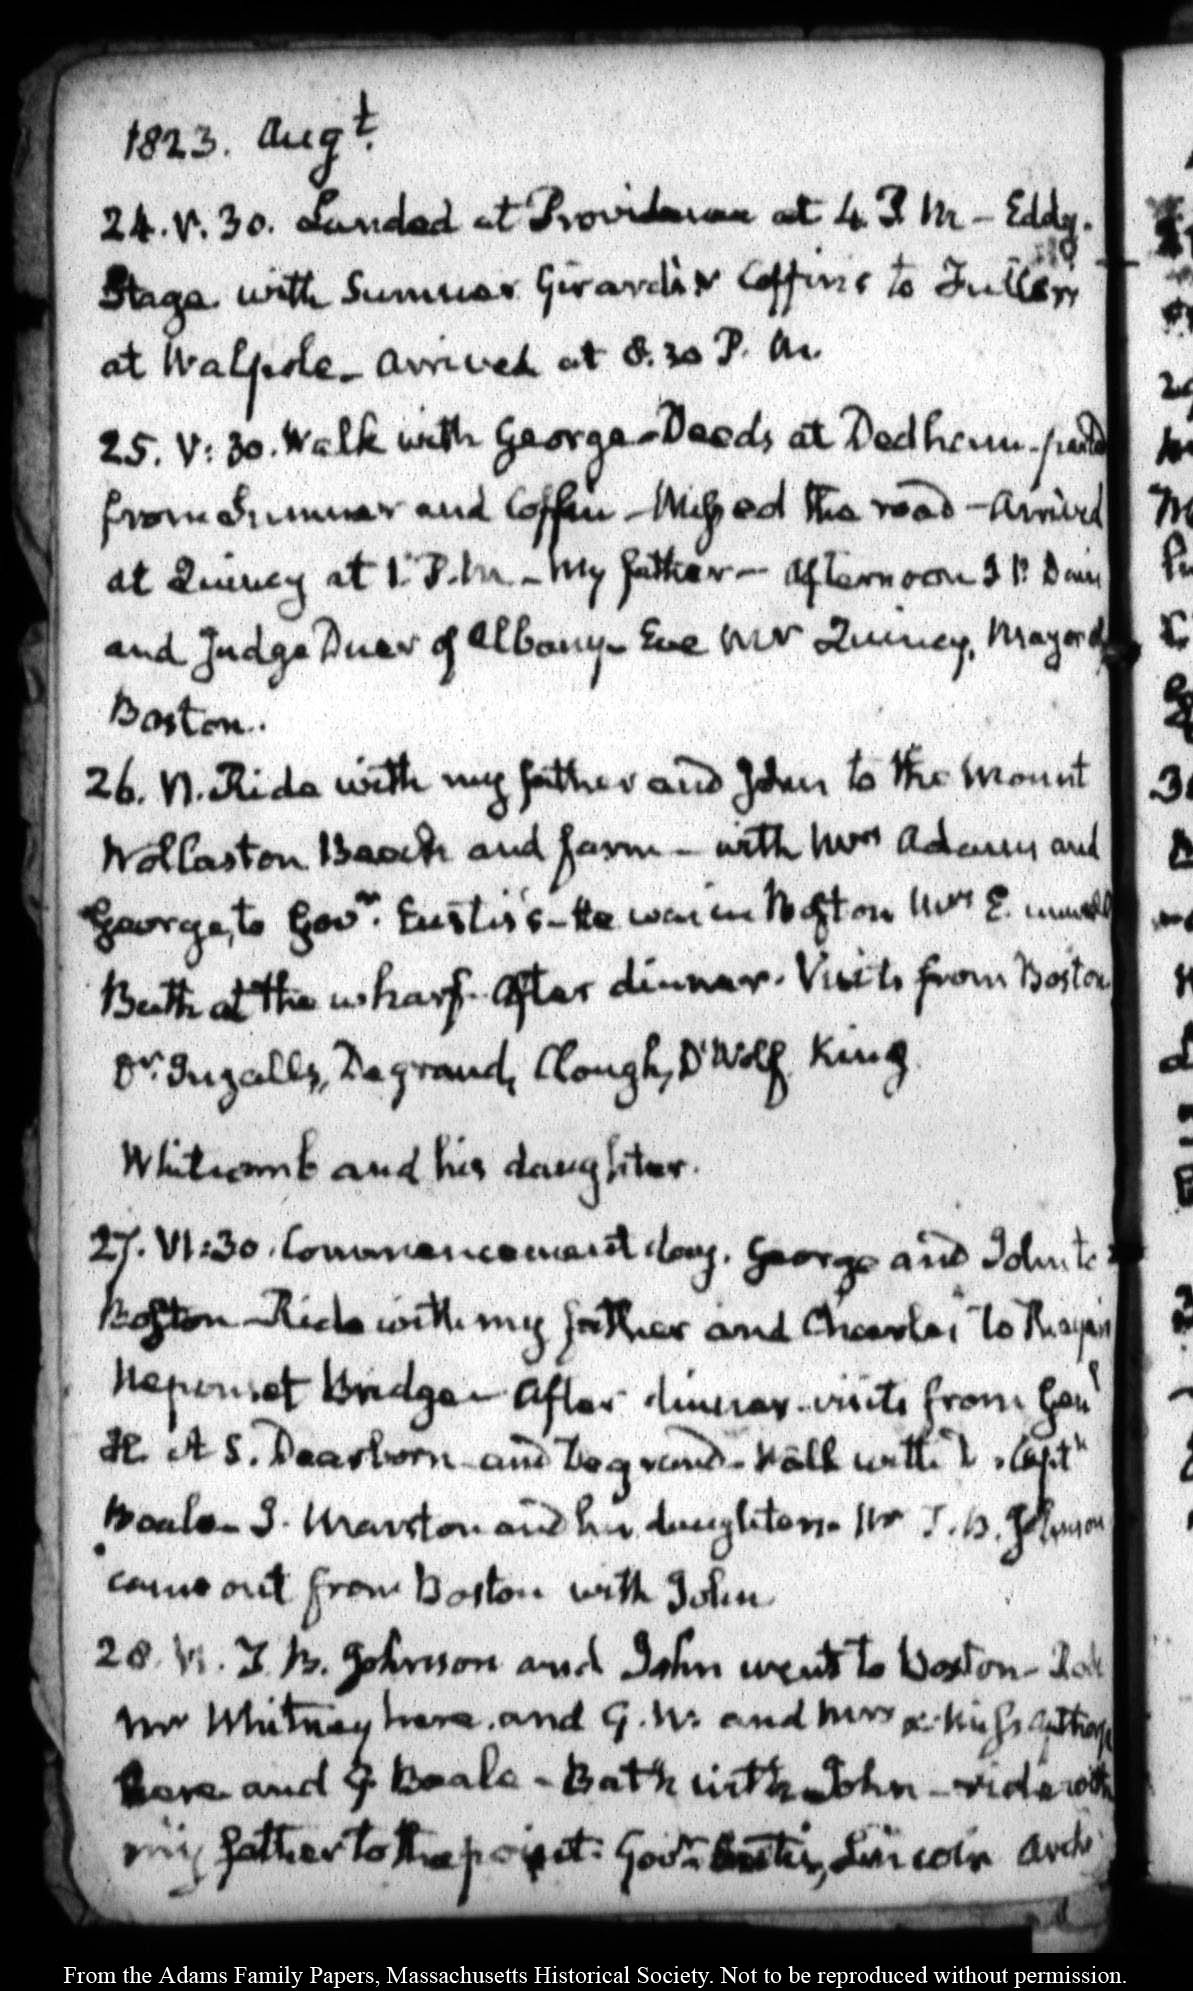 1823. Augt.
24. V. 30. Landed at Providence at 4. P. M — Eddy.
Stage with Sumner Girardin Coffins to Fullers
at Walpole — arrived at 8.30 P. M.
25. V: 30. Walk with George — Deeds at Dedham — parted
from Sumner and Coffin — Missed the road — Arrived
at Quincy at 1. P. M. — My father — Afternoon J P. Davis
and Judge Duer of Albany — Eve Mr Quincy, Mayor of
Boston.
26. VI. Ride with my father and John to the Mount
Wollaston Beach and farm — with Mrs Adams and
George, to Govr. Eustis's — He was in Boston Mrs E. unwell
Bath at the wharf. After dinner. Visits from Boston
Dr. Ingalls, Degrand, Clough, D'Wolf King
Whitcomb and his daughter.
27. VI: 30. Commencement day. George and John to
Boston — Ride with my father and Charles to
Neponset Bridge — After dinner visits from Genl
H A S. Dearborn and Degrand — Walk with Captn
Beale — J. Marston and his daughters. Mr T. B. Johnson
came out from Boston with John
28. VI. T. B. Johnson and John went to Boston —
Mr Whitney here. and G. W. and Mrs & Miss Apthorp
here and G Beale — Bath with John — ride with
my father to the point. Govr. Eustis, Lincoln
From the Adams Family Papers, Massachusetts Historical Society. Not to be reproduced without permission.